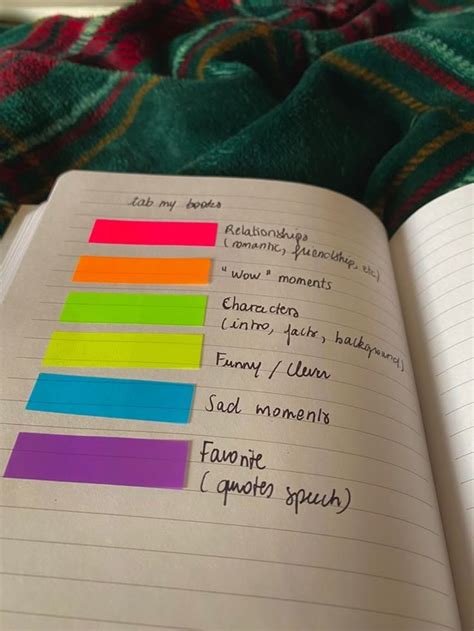 tab my books
Relationships
(romantic, friendship, etc)
"wow" moments
Characters
(intro, facts, background)
Funny / Clever
Sad moments
Favorite
(quotes speech)